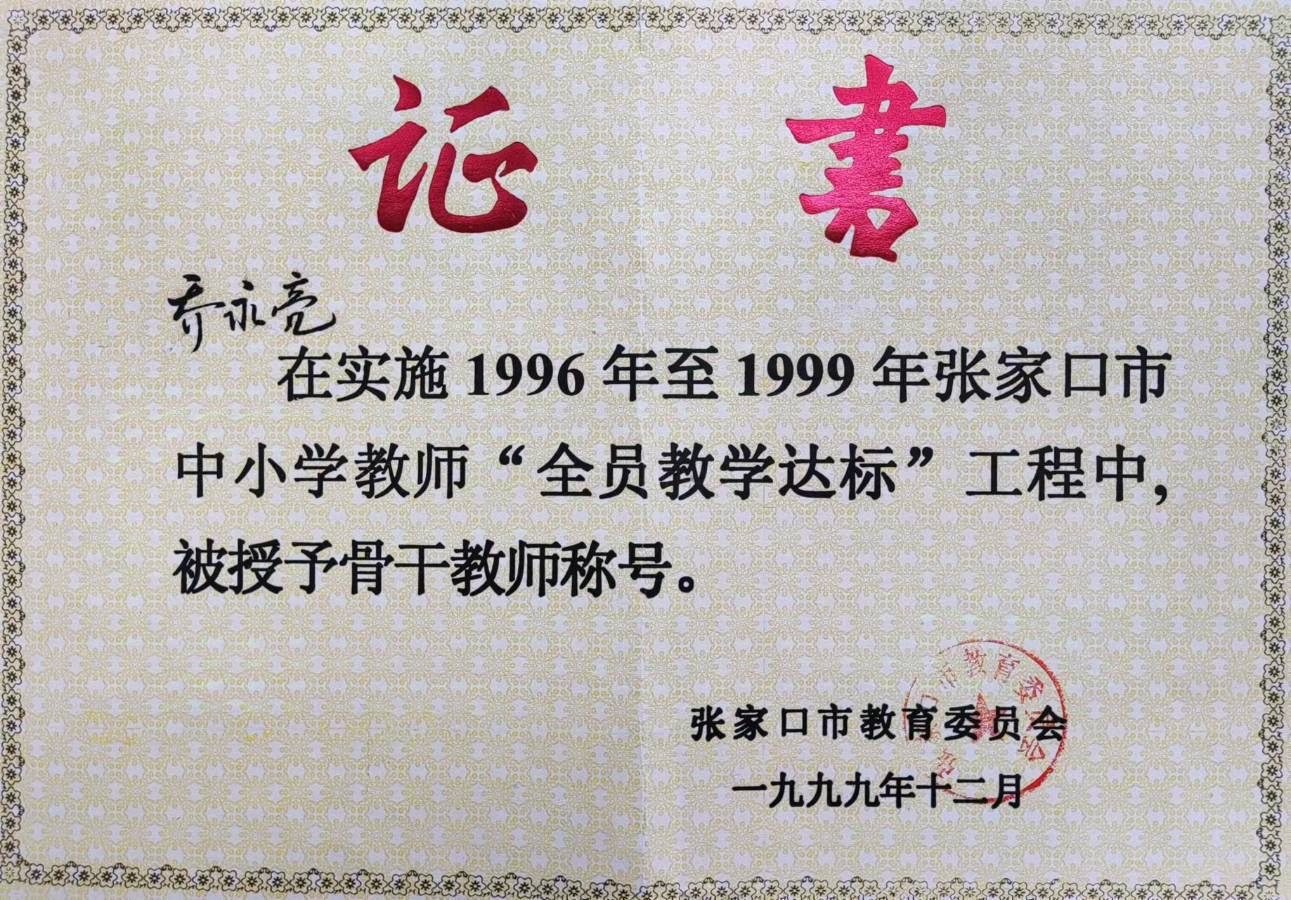 证书
乔永亮
在实施1996年至1999年张家口市
中小学教师“全员教学达标”工程中,
被授予骨干教师称号。
张家口市教育委员会
一九九九年十二月
口市教育委员会